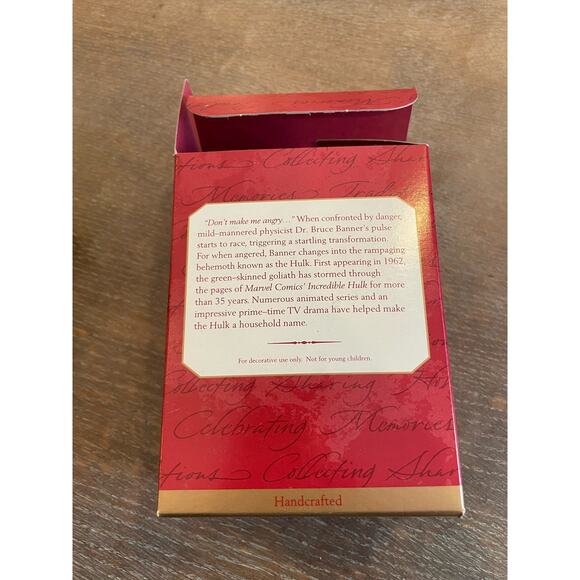 Memories
tions Collecting Shar
Memories Tradi
"Don't make me angry..." When confronted by danger,
mild–mannered physicist Dr. Bruce Banner's pulse
starts to race, triggering a startling transformation.
For when angered, Banner changes into the rampaging
behemoth known as the Hulk. First appearing in 1962,
the green–skinned goliath has stormed through
the pages of Marvel Comics' Incredible Hulk for more
than 35 years. Numerous animated series and an
impressive prime–time TV drama have helped make
the Hulk a household name.
For decorative use only. Not for young children.
Collecting Sharing Ho
Celebrating Memories
tions Collecting Shar
Handcrafted